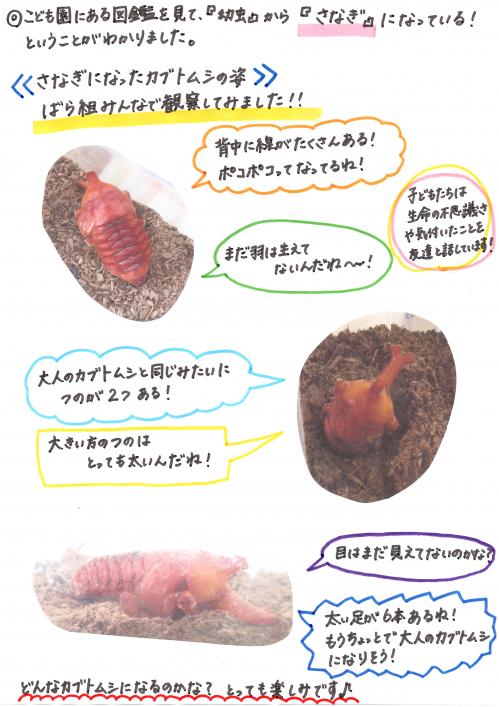 ◎こども園にある図鑑を見て、『幼虫』から『さなぎ』になっている！
ということがわかりました。
≪さなぎになったカブトムシの姿≫
ばら組みんなで観察してみました！！
背中に線がたくさんある！
ポコポコってなってるね！
子どもたちは
生命の不思議さ
や気付いたことを
友達と話しています！
まだ羽は生えて
ないんだね〜〜！
大人のカブトムシと同じみたいに
つのが２つある！
大きい方のつのは
とっても太いんだね！
目はまだ見えてないのかな？
太い足が６本あるね！
もうちょっとで大人のカブトムシ
になりそう！
どんなカブトムシになるのかな？ とっても楽しみです♪